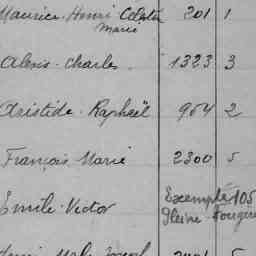 Maurice Henri Célestin 201 1
Marie
Alexis Charles 1323 3
Aristide Raphaël 954 2
François Marie 2300 5
Exempté 105
Emile Victor Pleine-Fougères